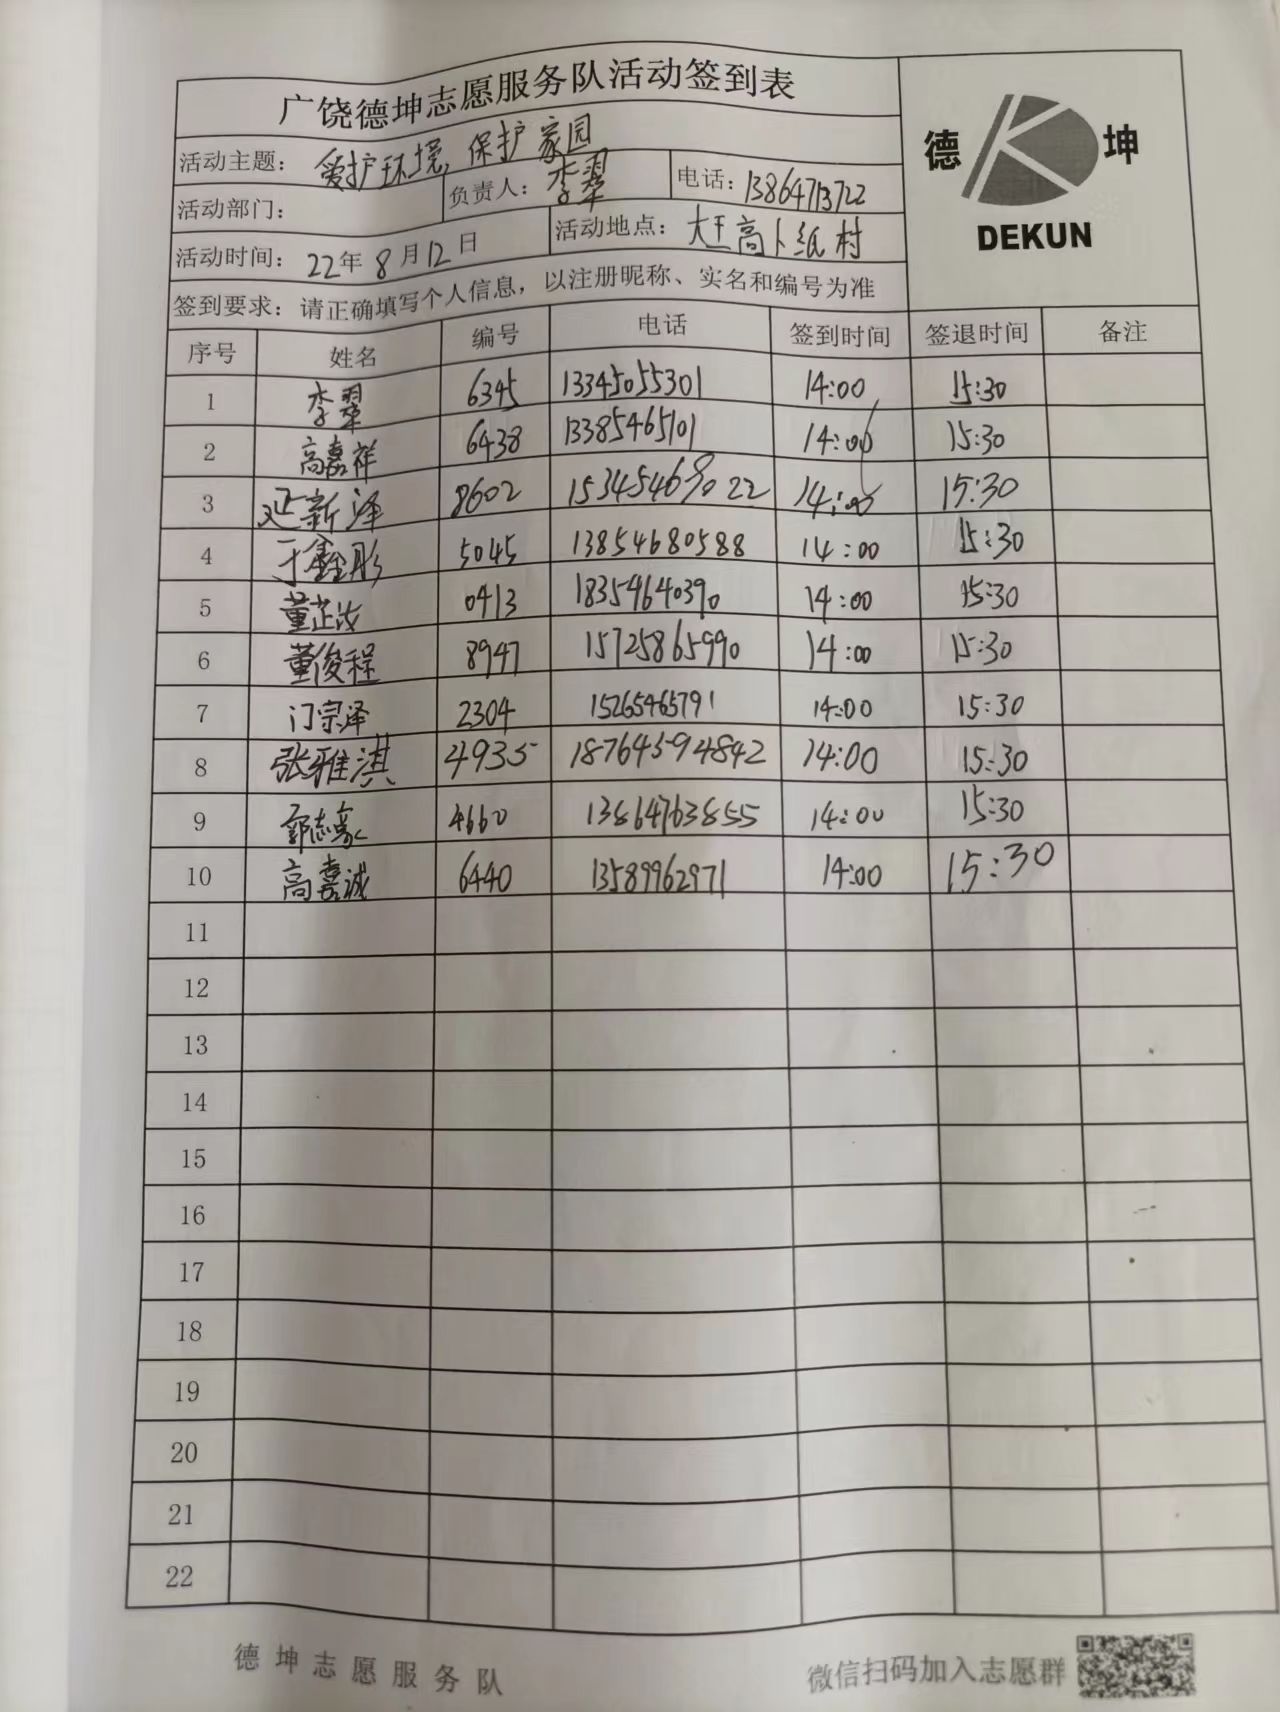 广饶德坤志愿服务队活动签到表
德 坤
DEKUN
活动主题： 爱护环境，保护家园
活动部门： 负责人：李翠 电话：13864713722
活动时间：22年8月12日 活动地点：大王高卜纸村
签到要求：请正确填写个人信息，以注册昵称、实名和编号为准
序号 姓名 编号 电话 签到时间 签退时间 备注
1 李翠 6345 13345055301 14:00 15:30
2 高嘉祥 6438 13385465101 14:00 15:30
3 延新泽 8602 15345469022 14:00 15:30
4 于鑫彤 5045 13854680588 14:00 15:30
5 董芷汝 0413 18354640390 14:00 15:30
6 董俊程 8947 15725865990 14:00 15:30
7 门宗泽 2304 15265465791 14:00 15:30
8 张雅淇 4935 18764594842 14:00 15:30
9 郭志豪 4660 13864763855 14:00 15:30
10 高嘉诚 6440 13589962971 14:00 15:30
11
12
13
14
15
16
17
18
19
20
21
22
德坤志愿服务队 微信扫码加入志愿群